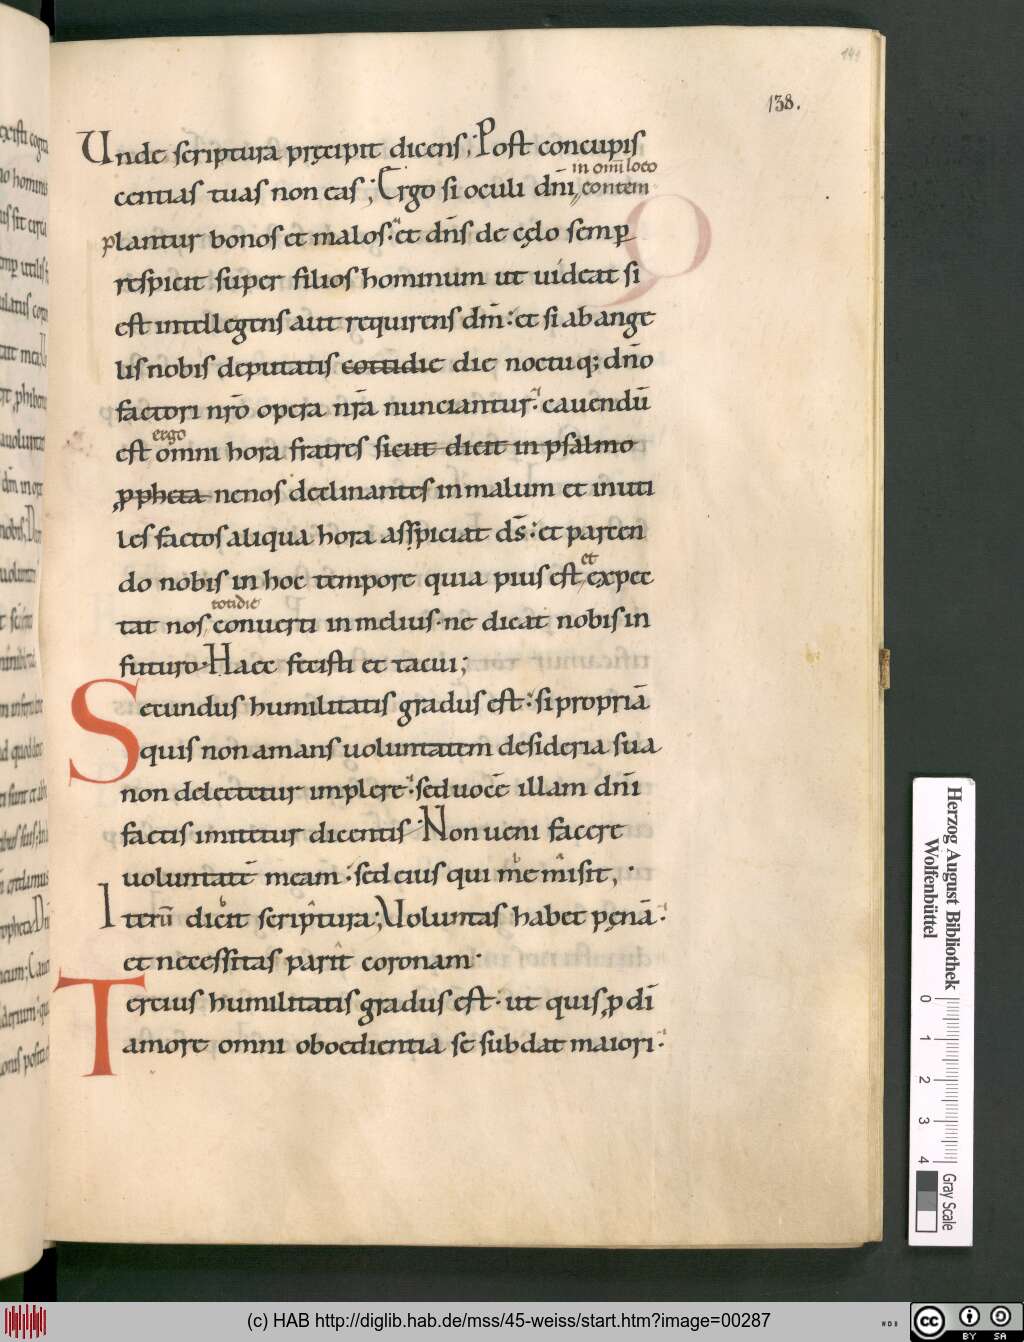 141
138.
Unde scriptura pręcipit dicens; Post concupis
centias tuas non eas; Ergo si oculi dn̄i in om̄i loco contem
plantur bonos et malos. et dn̄s de cęlo semp̄
respicit super filios hominum ut uideat si
est intellegens aut requirens dm̄: et si ab ange
lis nobis deputatis cottidie die noctuq; dn̄o
factori nr̄o opera nr̄a nunciantur. cauendū
est ergo omni hora fratres sicut dicit in psalmo
ꝓpheta ne nos declinantes in malum et inuti
les factos aliqua hora asspiciat dēs: et parcen
do nobis in hoc tempore quia pius est et expec
tat nos cotidie conuerti in melius. ne dicat nobis in
futuro. Haec fecisti et tacui;
Secundus humilitatis gradus est: si propriā
quis non amans uoluntatem desideria sua
non delectetur implere. sed uocē illam dn̄i
factis imitetur dicentis. Non ueni facere
uoluntatē meam. sed eius qui me misit,
Iterū dicit scriptura; Uoluntas habet pęnā.
et necessitas parit coronam.
Tercius humilitatis gradus est. ut quis ꝓ dī
amore omni oboedientia se subdat maiori.
Herzog August Bibliothek
Wolfenbüttel
0 1 2 3 4
Gray Scale
(c) HAB http://diglib.hab.de/mss/45-weiss/start.htm?image=00287
cc BY SA